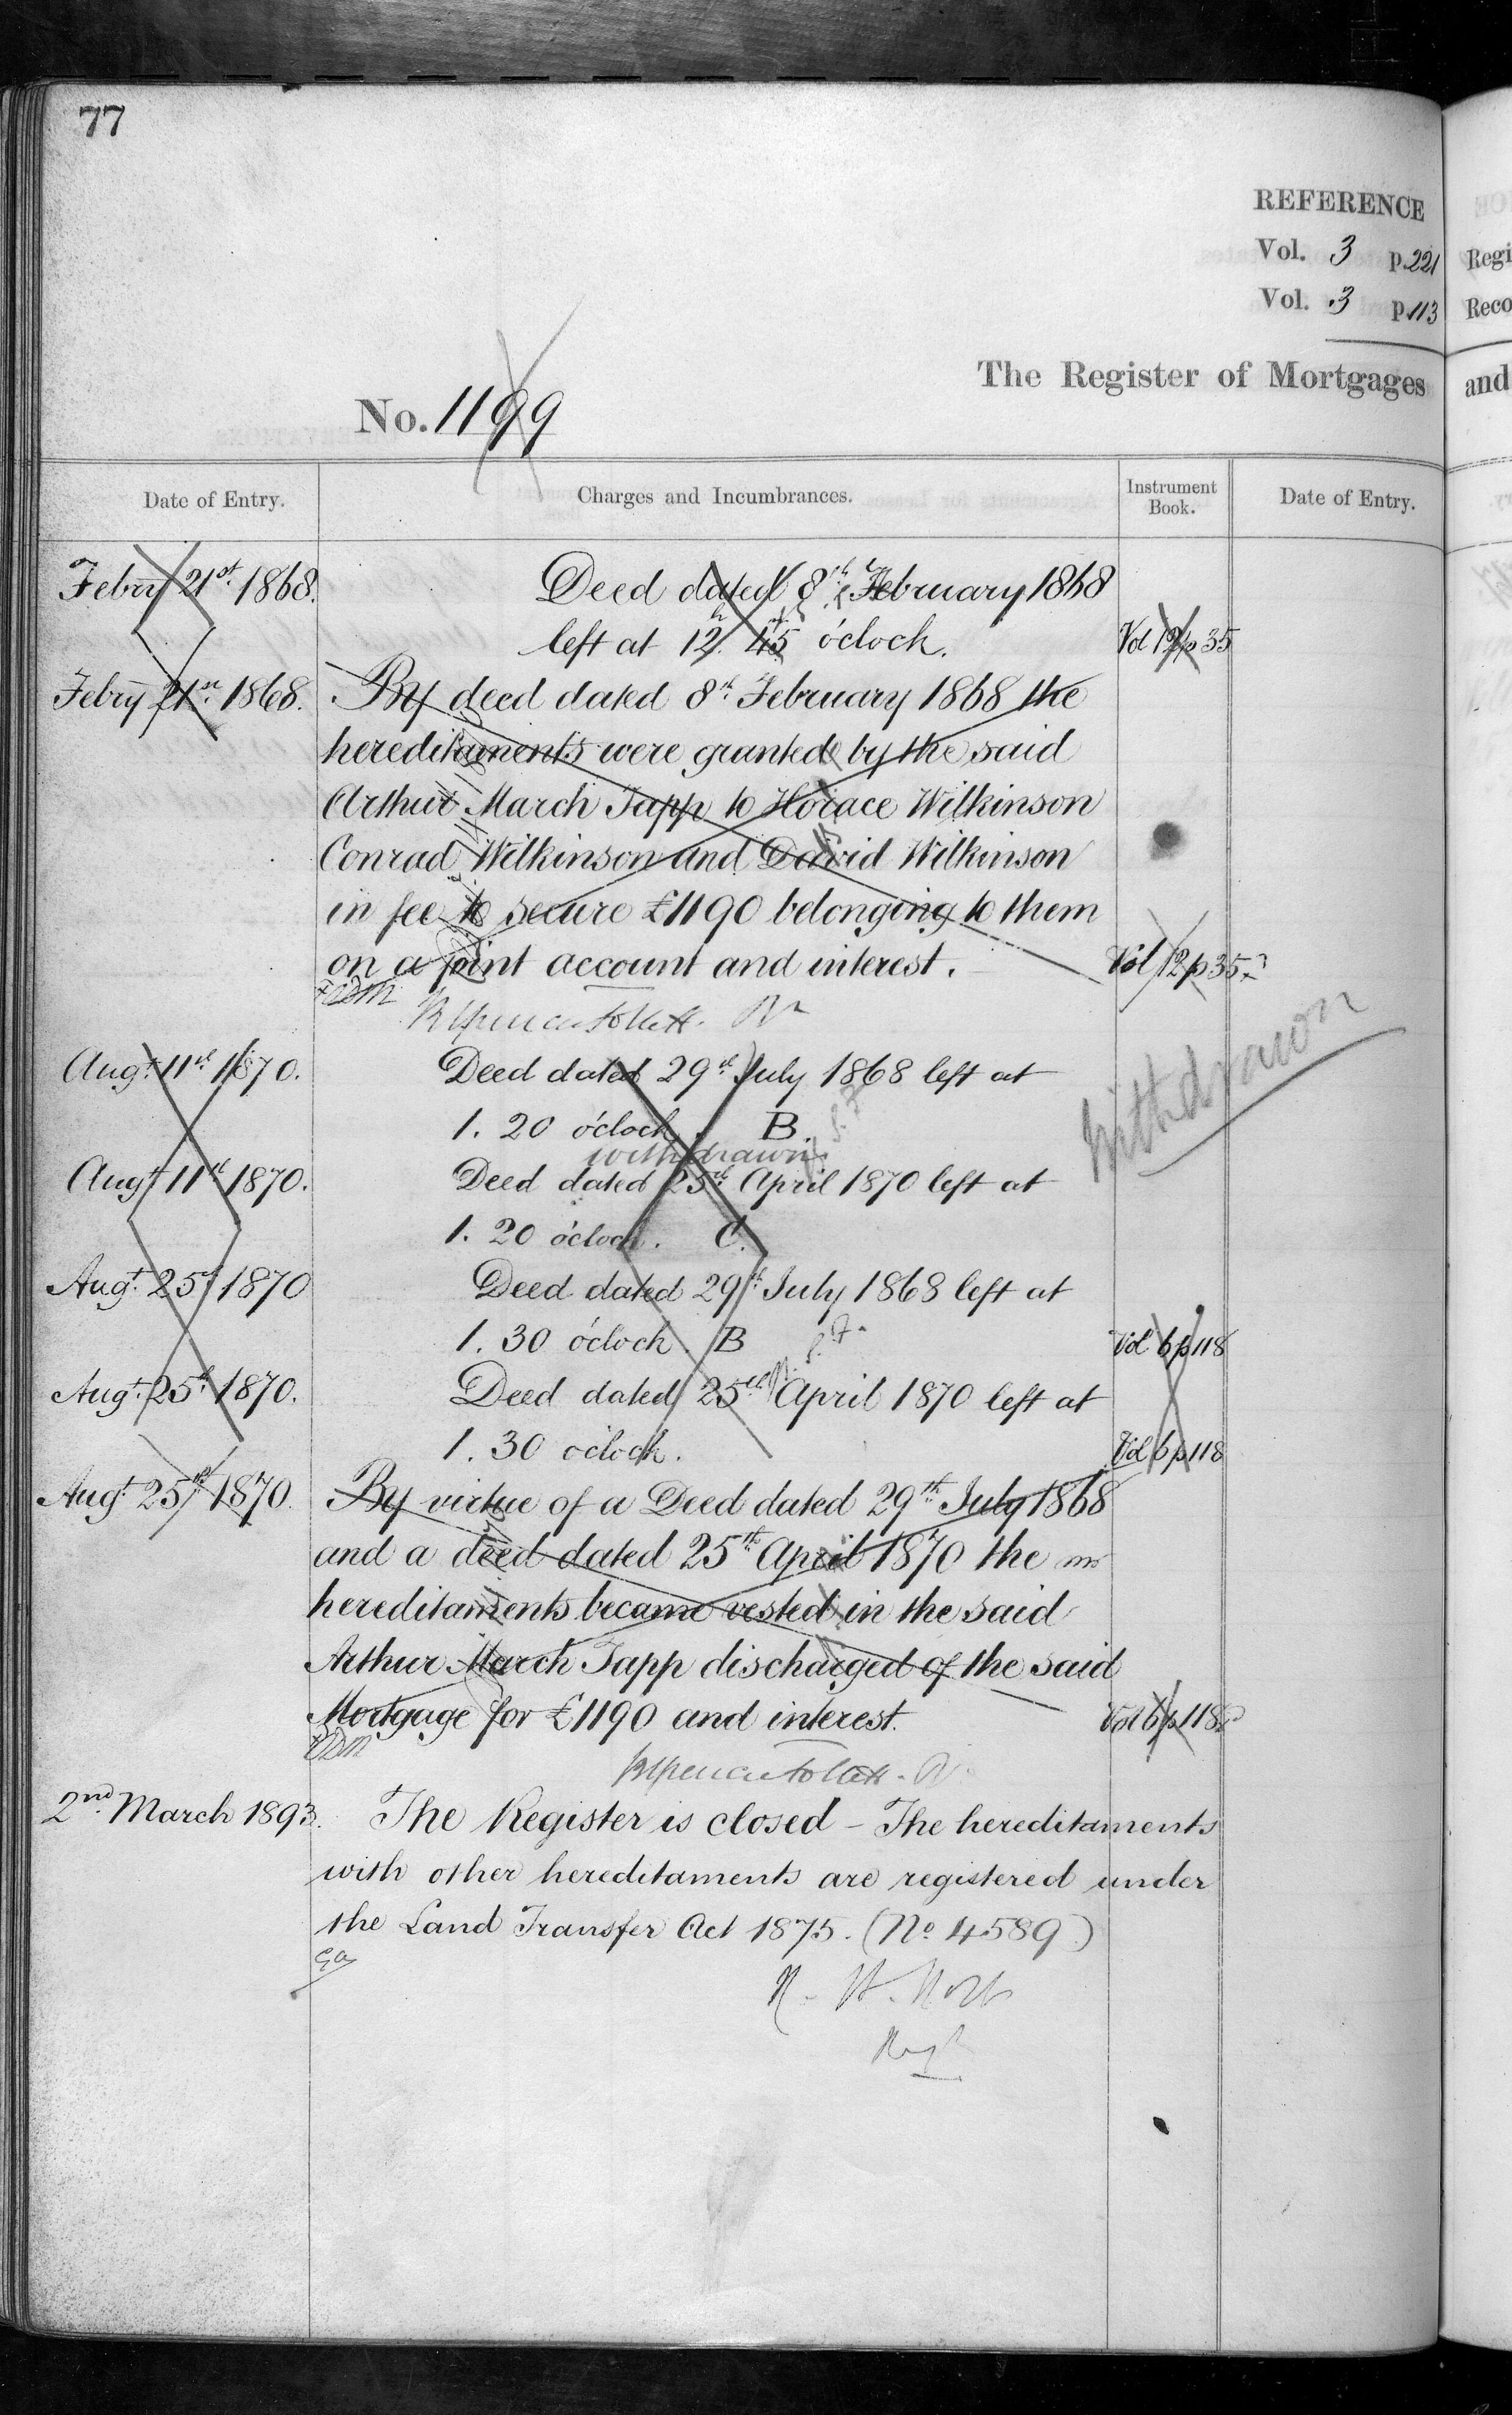 77
REFERENCE
Vol. 3 p. 221
Vol. 3 p. 113
The Register of Mortgages
No. 1199
Date of Entry.
Charges and Incumbrances.
Instrument Book.
Date of Entry.
Febry 21st 1868. Deed dated 8th February 1868
left at 12h 45 o'clock. Vol 12 p 35
Febry 21st 1868. By deed dated 8th February 1868 the
hereditaments were granted by the said
Arthur March Tapp to Horace Wilkinson
Conrad Wilkinson and David Wilkinson
in fee to secure £1190 belonging to them
on a joint account and interest. Vol 12 p 35
Augt 11th 1870. Deed dated 29th July 1868 left at
1. 20 o'clock. B.
withdrawn
withdrawn
Augt 11th 1870. Deed dated 25th April 1870 left at
1. 20 o'clock. C.
Augt 25th 1870 Deed dated 29th July 1868 left at
1. 30 o'clock. B Vol 6 p 118
Augt 25th 1870. Deed dated 25th April 1870 left at
1. 30 o'clock. Vol 6 p 118
Augt 25th 1870. By virtue of a Deed dated 29th July 1868
and a deed dated 25th April 1870 the
hereditaments became vested in the said
Arthur March Tapp discharged of the said
Mortgage for £1190 and interest. Vol 6 p 118
2nd March 1893. The Register is closed – The hereditaments
with other hereditaments are registered under
the Land Transfer Act 1875. (No 4589)
Regi
Reco
and